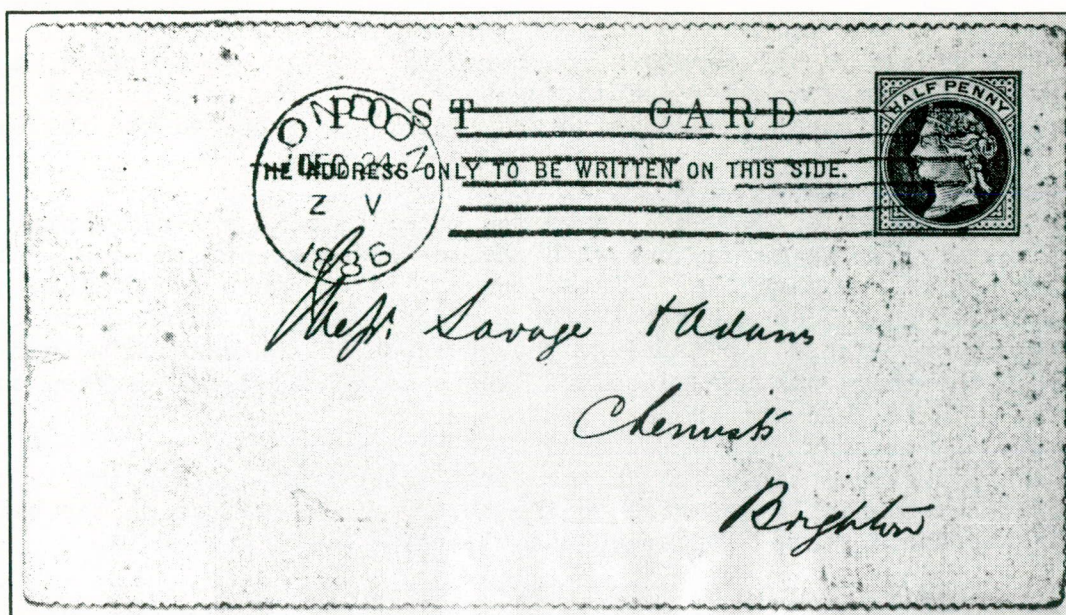 POST CARD
HALF PENNY
THE ADDRESS ONLY TO BE WRITTEN ON THIS SIDE.
ONDON
DEC 24
Z V
1886
Messrs. Savage & Adams
Chemists
Brighton